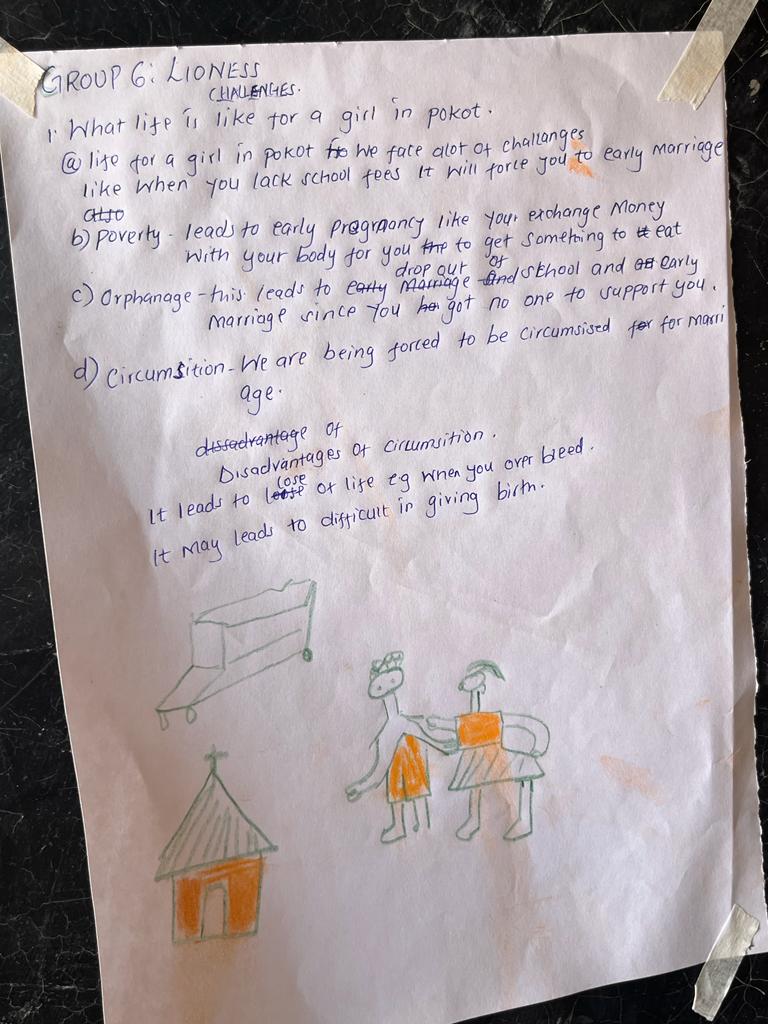 GROUP 6: LIONESS
CHALLENGES.
1. What life is like for a girl in pokot.
@ life for a girl in pokot we face alot of challanges
like when you lack school fees It will force you to early marriage
also
b) poverty - leads to early pregnancy like your exchange Money
with your body for you to get something to eat
drop out of
c) Orphanage - this leads to early Marriage and school and early
Marriage since you got no one to support you.
d) Circumsition - We are being forced to be circumsised for for marri
age.
dissadvantage of
Disadvantages of circumsition.
lose
It leads to of life eg when you over bleed.
It may leads to difficult in giving birth.